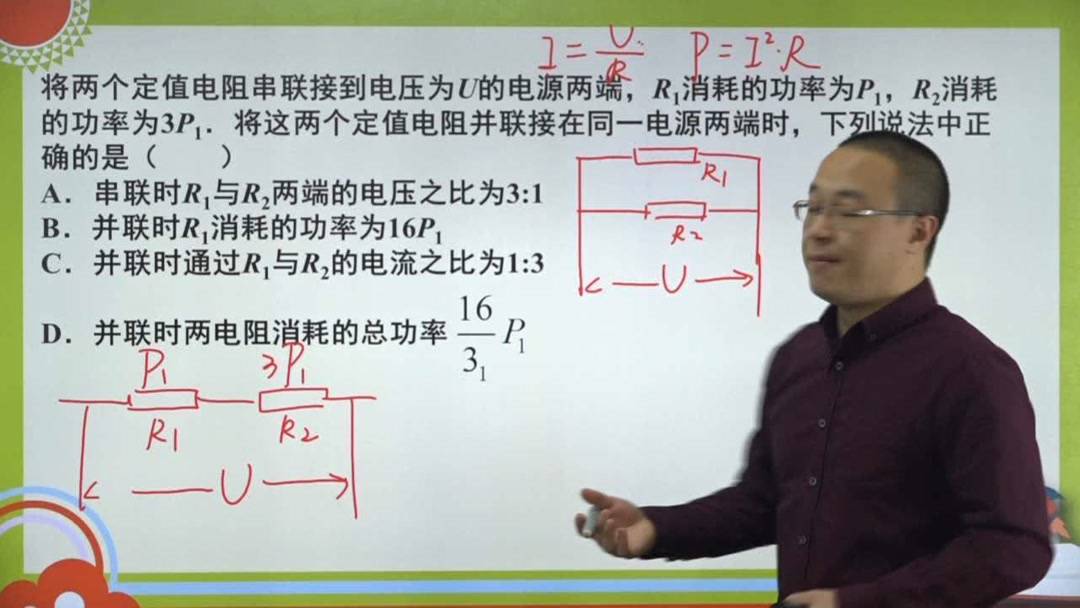 I = U/R P = I²·R
将两个定值电阻串联接到电压为U的电源两端，R₁消耗的功率为P₁，R₂消耗
的功率为3P₁．将这两个定值电阻并联接在同一电源两端时，下列说法中正
确的是（ ）
A．串联时R₁与R₂两端的电压之比为3:1
B．并联时R₁消耗的功率为16P₁
C．并联时通过R₁与R₂的电流之比为1:3
D．并联时两电阻消耗的总功率 16/3₁ P₁
R₁
R₂
U
P₁ 3P₁
R₁ R₂
U